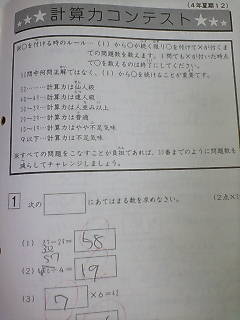 (4年夏期12)
計算力コンテスト
※○を付ける時のルール…(1)から○が続く限り○を付けて×が付くま
での問題数を数えます。1問でも×が付いた時点
で○を数えるのは終了にしてください。
50問中何問正解ではなく、(1)から○を続けることが重要です。
50………計算力は仙人級
40〜49…計算力は達人級
30〜39…計算力は人並み以上
20〜29…計算力は普通
10〜19…計算力はやや不足気味
9以下…計算力は不足気味
※すべての問題をこなすことが負担であれば、30番までのように問題数を
減らしてチャレンジしましょう。
1 次の□にあてはまる数を求めなさい。 (2点×
(1) −29= 58
(2) ÷4= 19
(3) 7 ×6=42